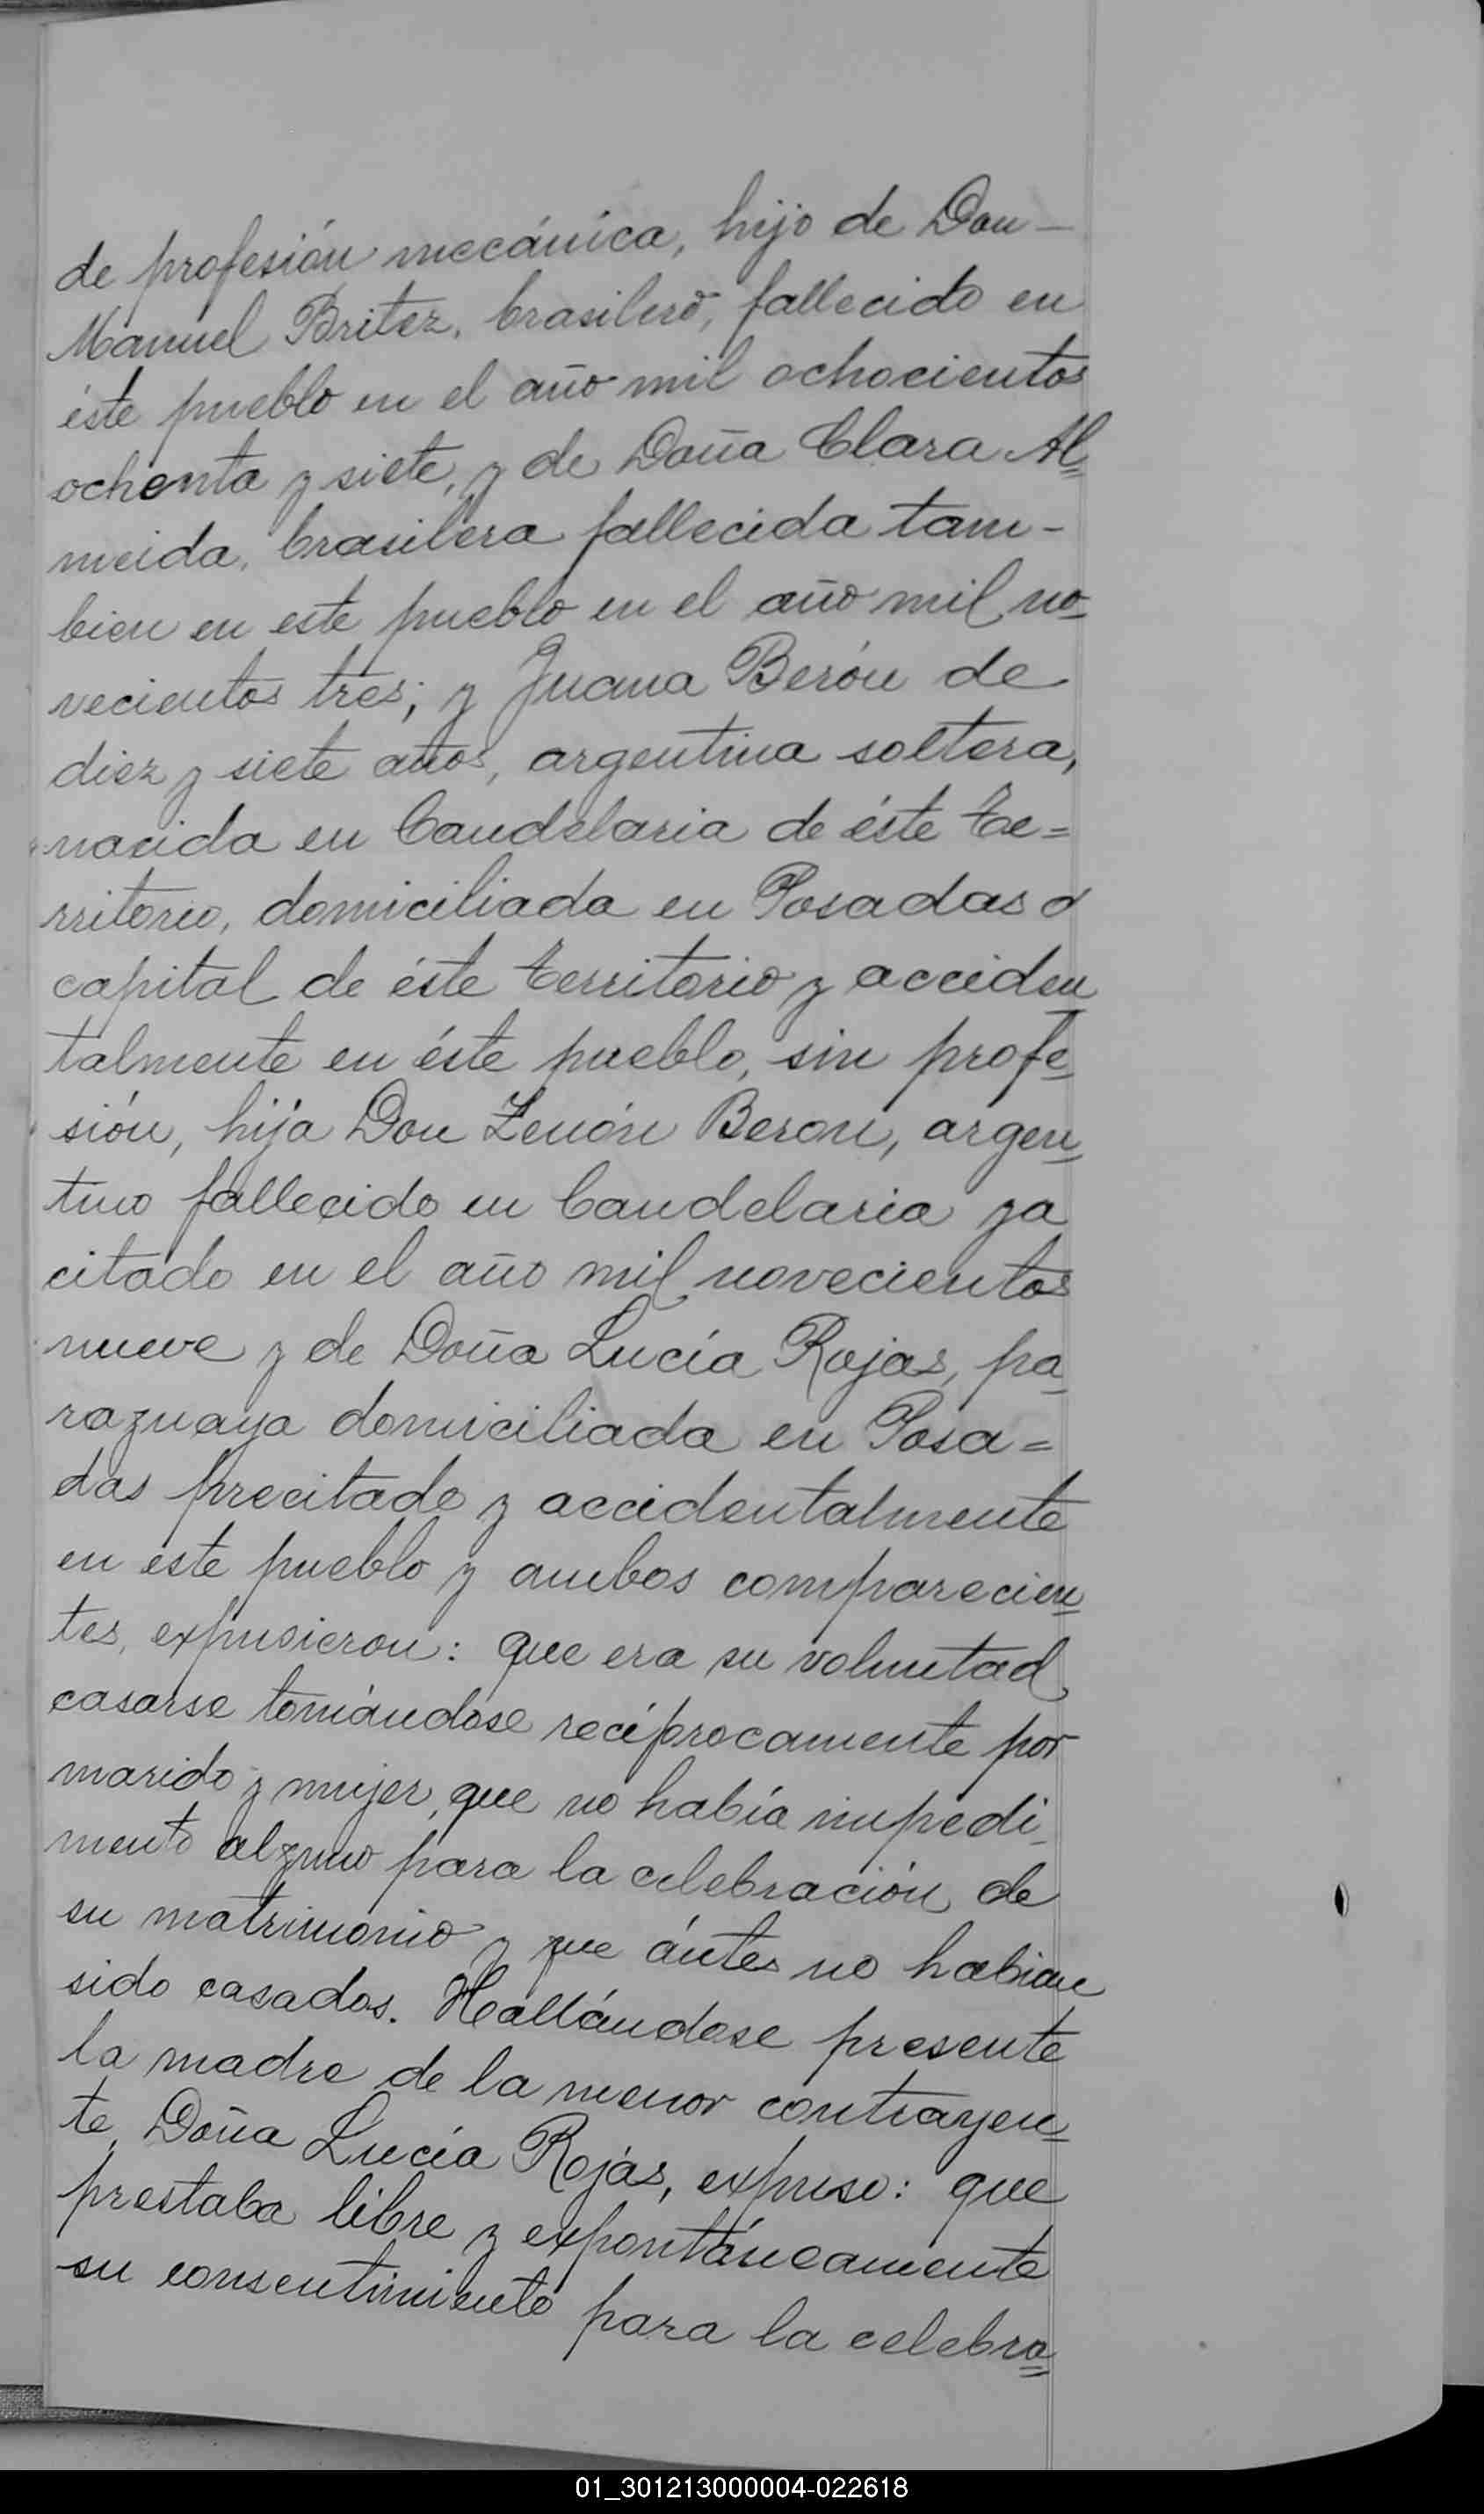 de profesión mecánica, hijo de Don—
Manuel Britez, brasilero, fallecido en
éste pueblo en el año mil ochocientos
ochenta y siete, y de Doña Clara Al=
meida, brasilera fallecida tam-
bien en este pueblo en el año mil no=
vecientos tres; y Juana Berón de
diez y siete años, argentina soltera,
nacida en Candelaria de éste te=
rritorio, domiciliada en Posadas
capital de éste territorio y acciden
talmente en éste pueblo, sin profe=
sión, hija Don Zenón Beron, argen=
tino fallecido en Candelaria ya
citado en el año mil novecientos
nueve y de Doña Lucía Rojas, pa=
raguaya domiciliada en Posa=
das precitado y accidentalmente
en este pueblo y ambos comparecien=
tes, expusieron: que era su voluntad
casarse tomándose recíprocamente por
marido y mujer, que no había impedi-
mento alguno para la celebración de
su matrimonio y que ántes no habian
sido casados. Hallándose presente
la madre de la menor contrayen=
te, Doña Lucía Rojas, expuso: que
prestaba libre y expontáneamente
su consentimiento para la celebra=
01_301213000004-022618